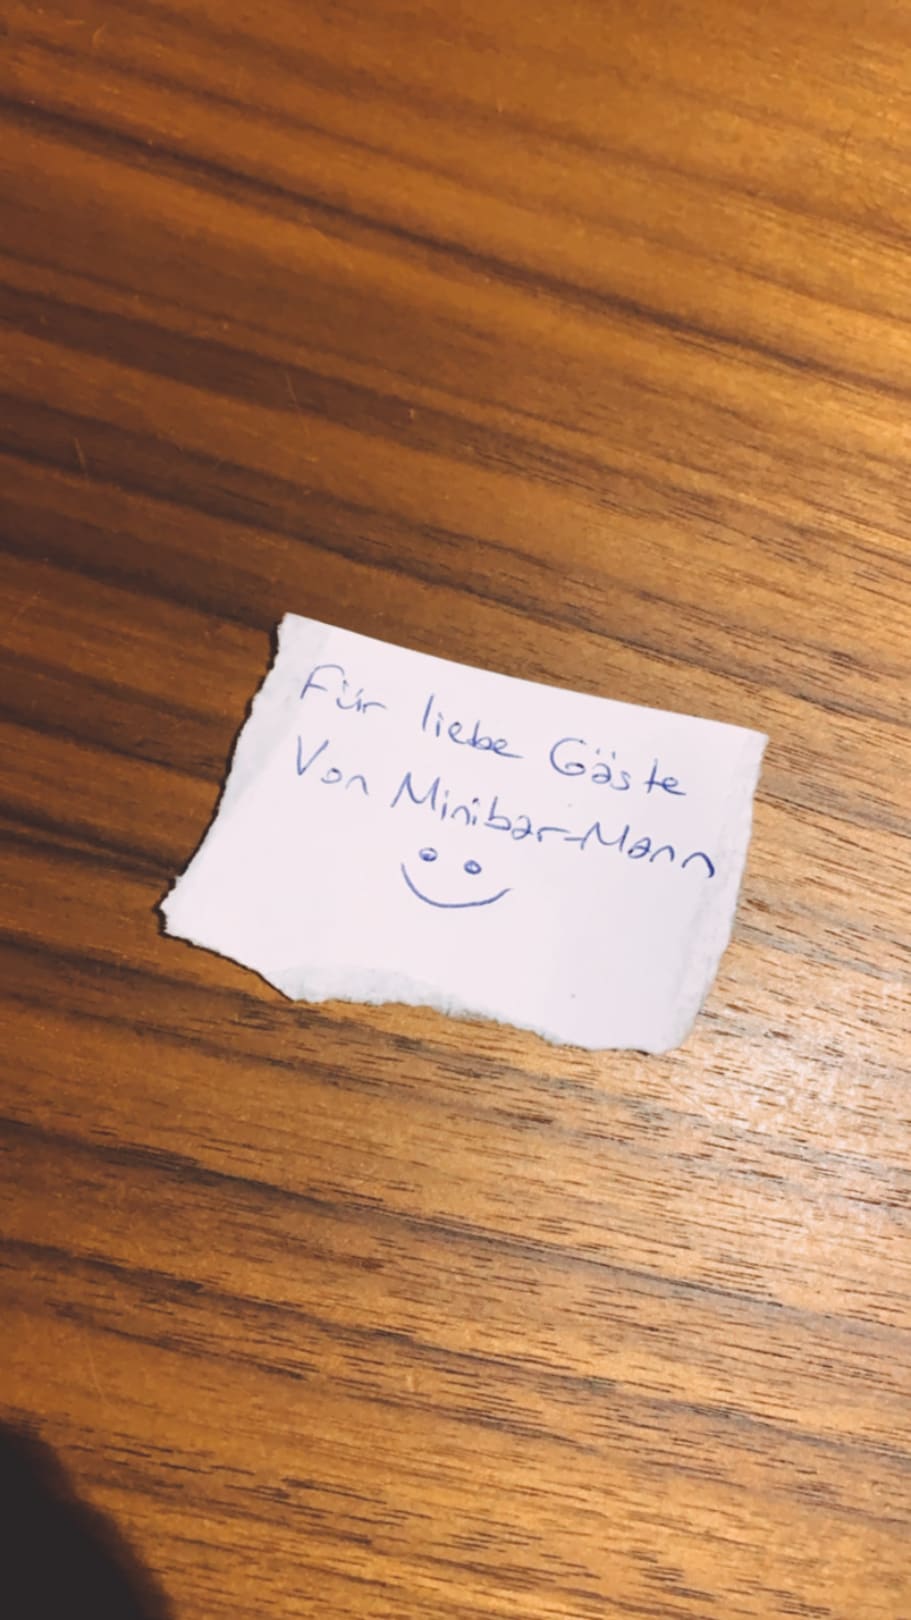 Für liebe Gäste
Von Minibar-Mann